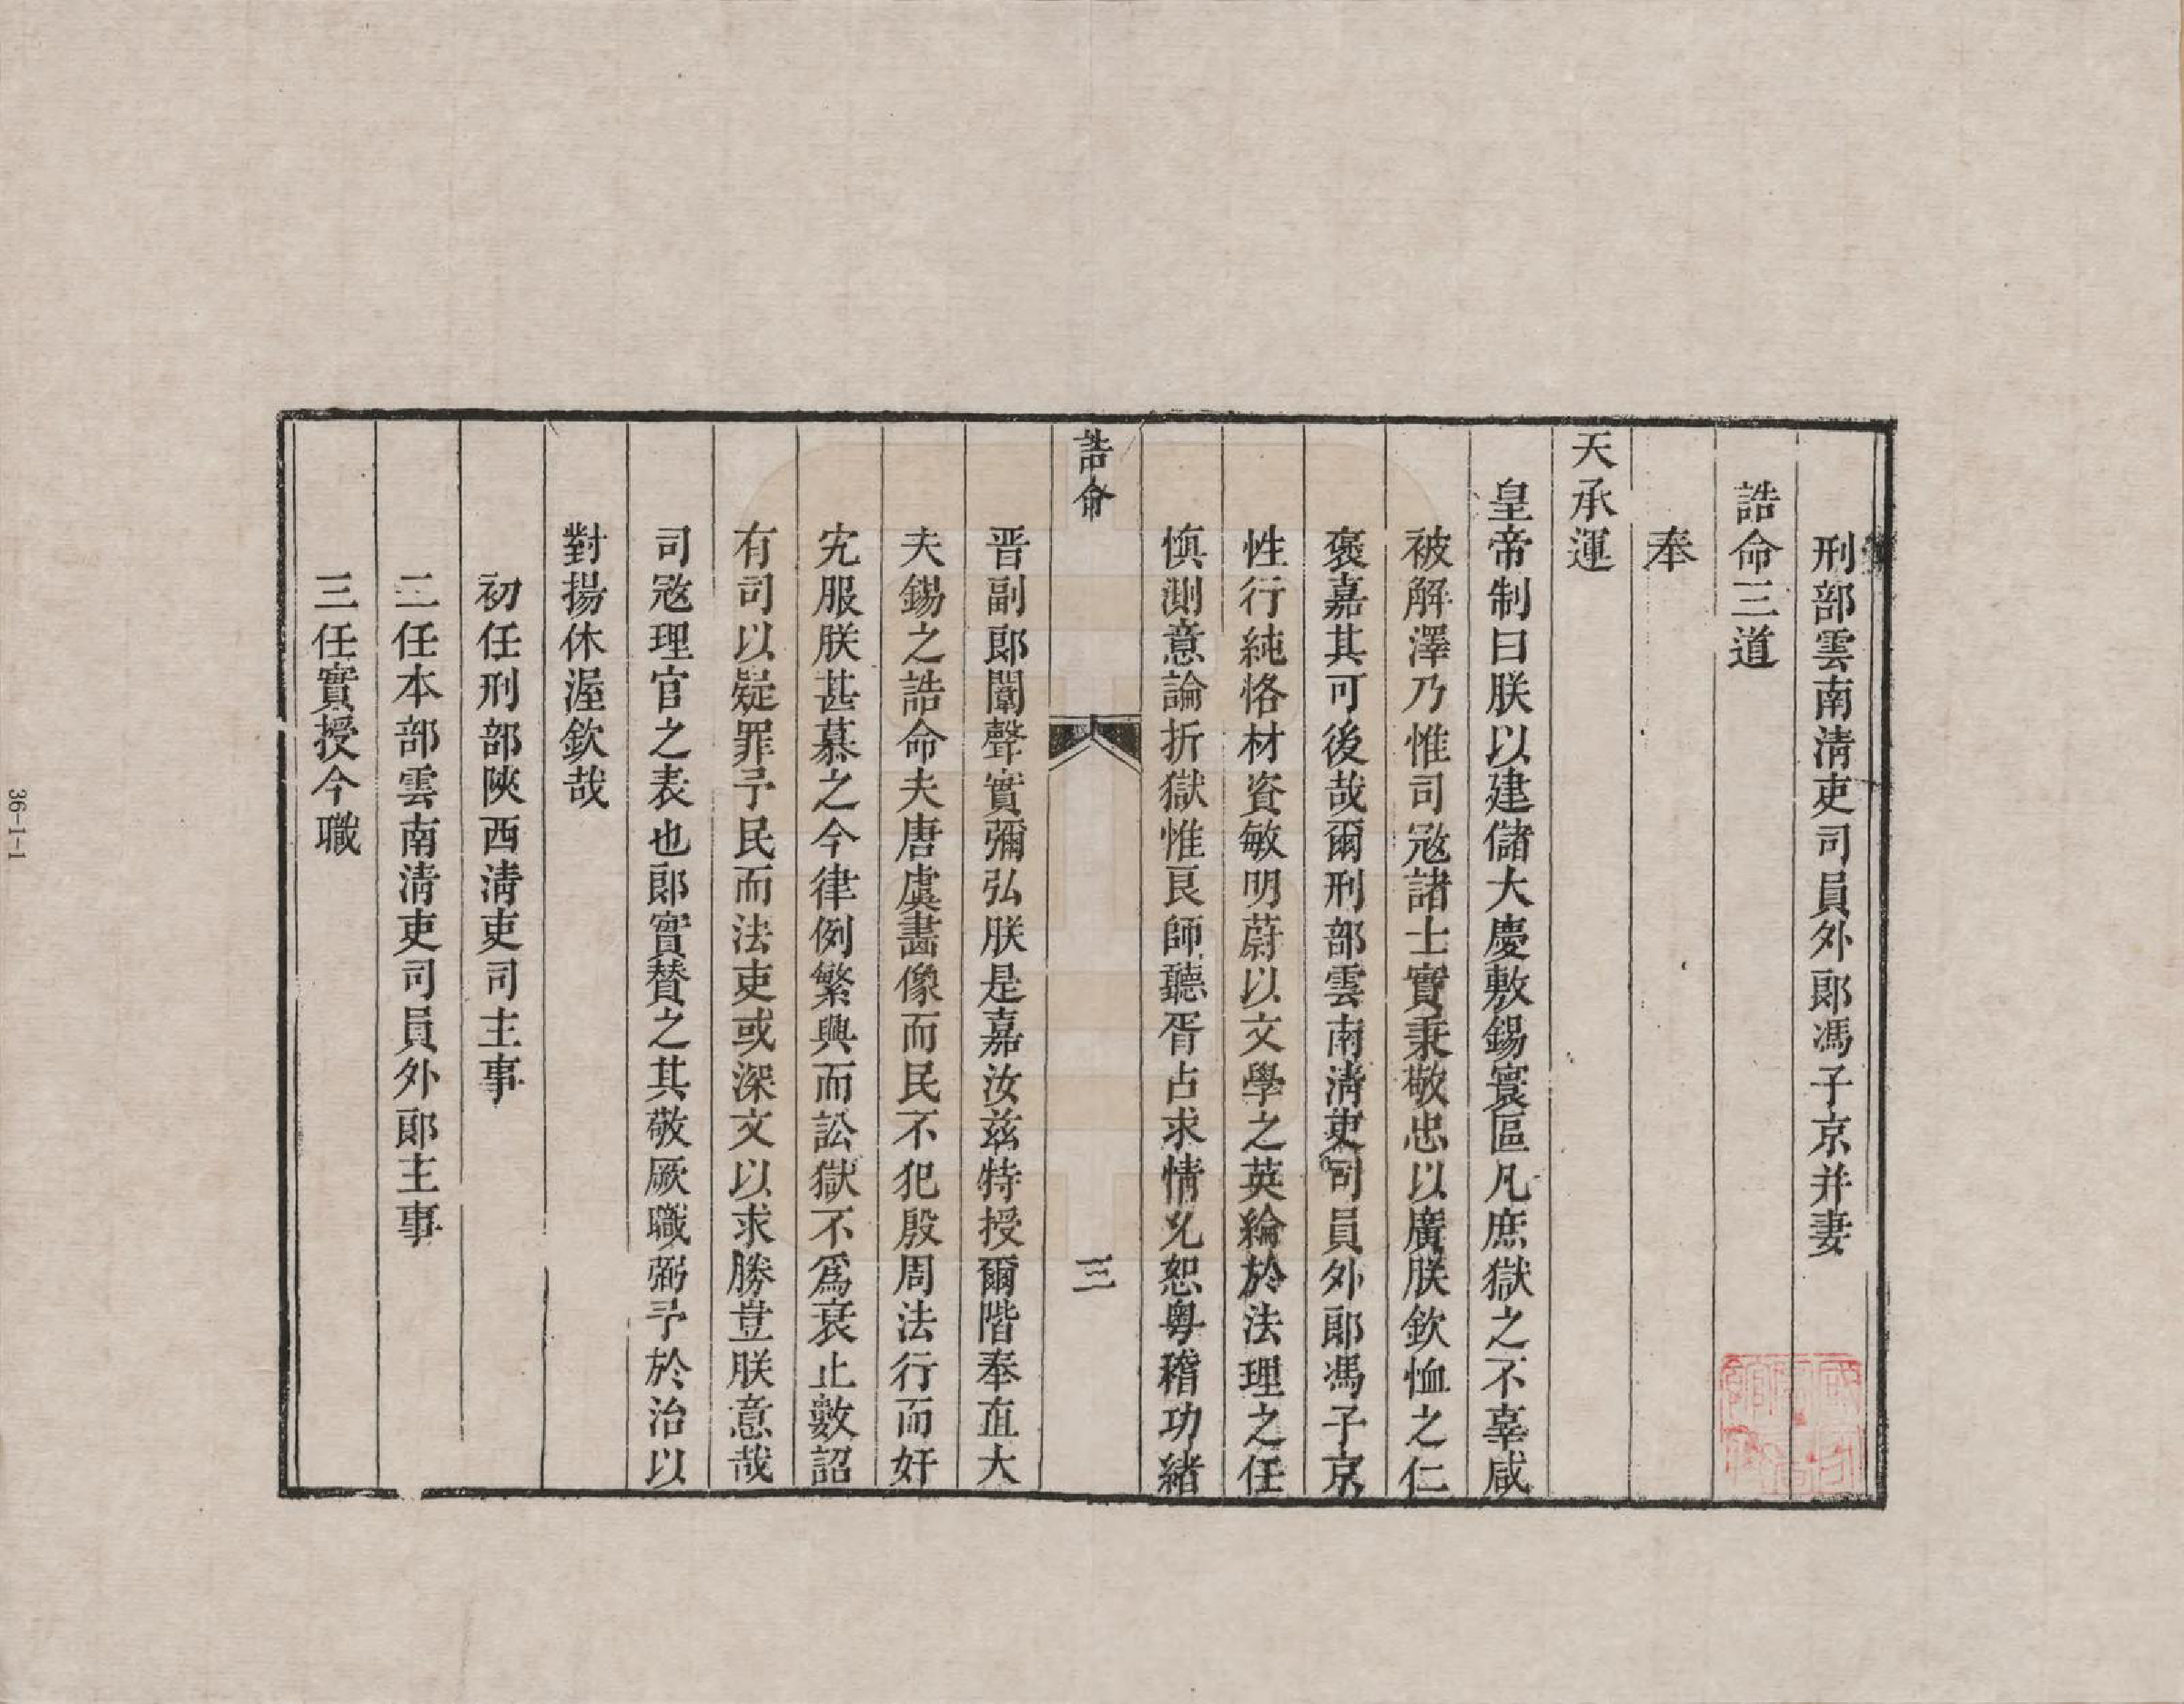 刑部雲南淸吏司員外郎馮子京并妻
誥命三道
奉
天承運
皇帝制曰朕以建儲大慶敷錫寰區凡庶獄之不辜咸
被解澤乃惟司寇諸士實秉敬忠以廣朕欽恤之仁
褒嘉其可後哉爾刑部雲南淸吏司員外郎馮子京
性行純恪材資敏明蔚以文學之英綸於法理之任
愼測意論折獄惟良師聽胥占求情允恕粤稽功緒
誥命
三
晋副郎闈聲實彌弘朕是嘉汝茲特授爾階奉直大
夫錫之誥命夫唐虞畫像而民不犯殷周法行而奸
宄服朕甚慕之今律例繁興而訟獄不爲衰止數詔
有司以疑罪予民而法吏或深文以求勝豈朕意哉
司寇理官之表也郎實贊之其敬厥職弼予於治以
對揚休渥欽哉
初任刑部陝西淸吏司主事
二任本部雲南淸吏司員外郎主事
三任實授今職
36-1-1